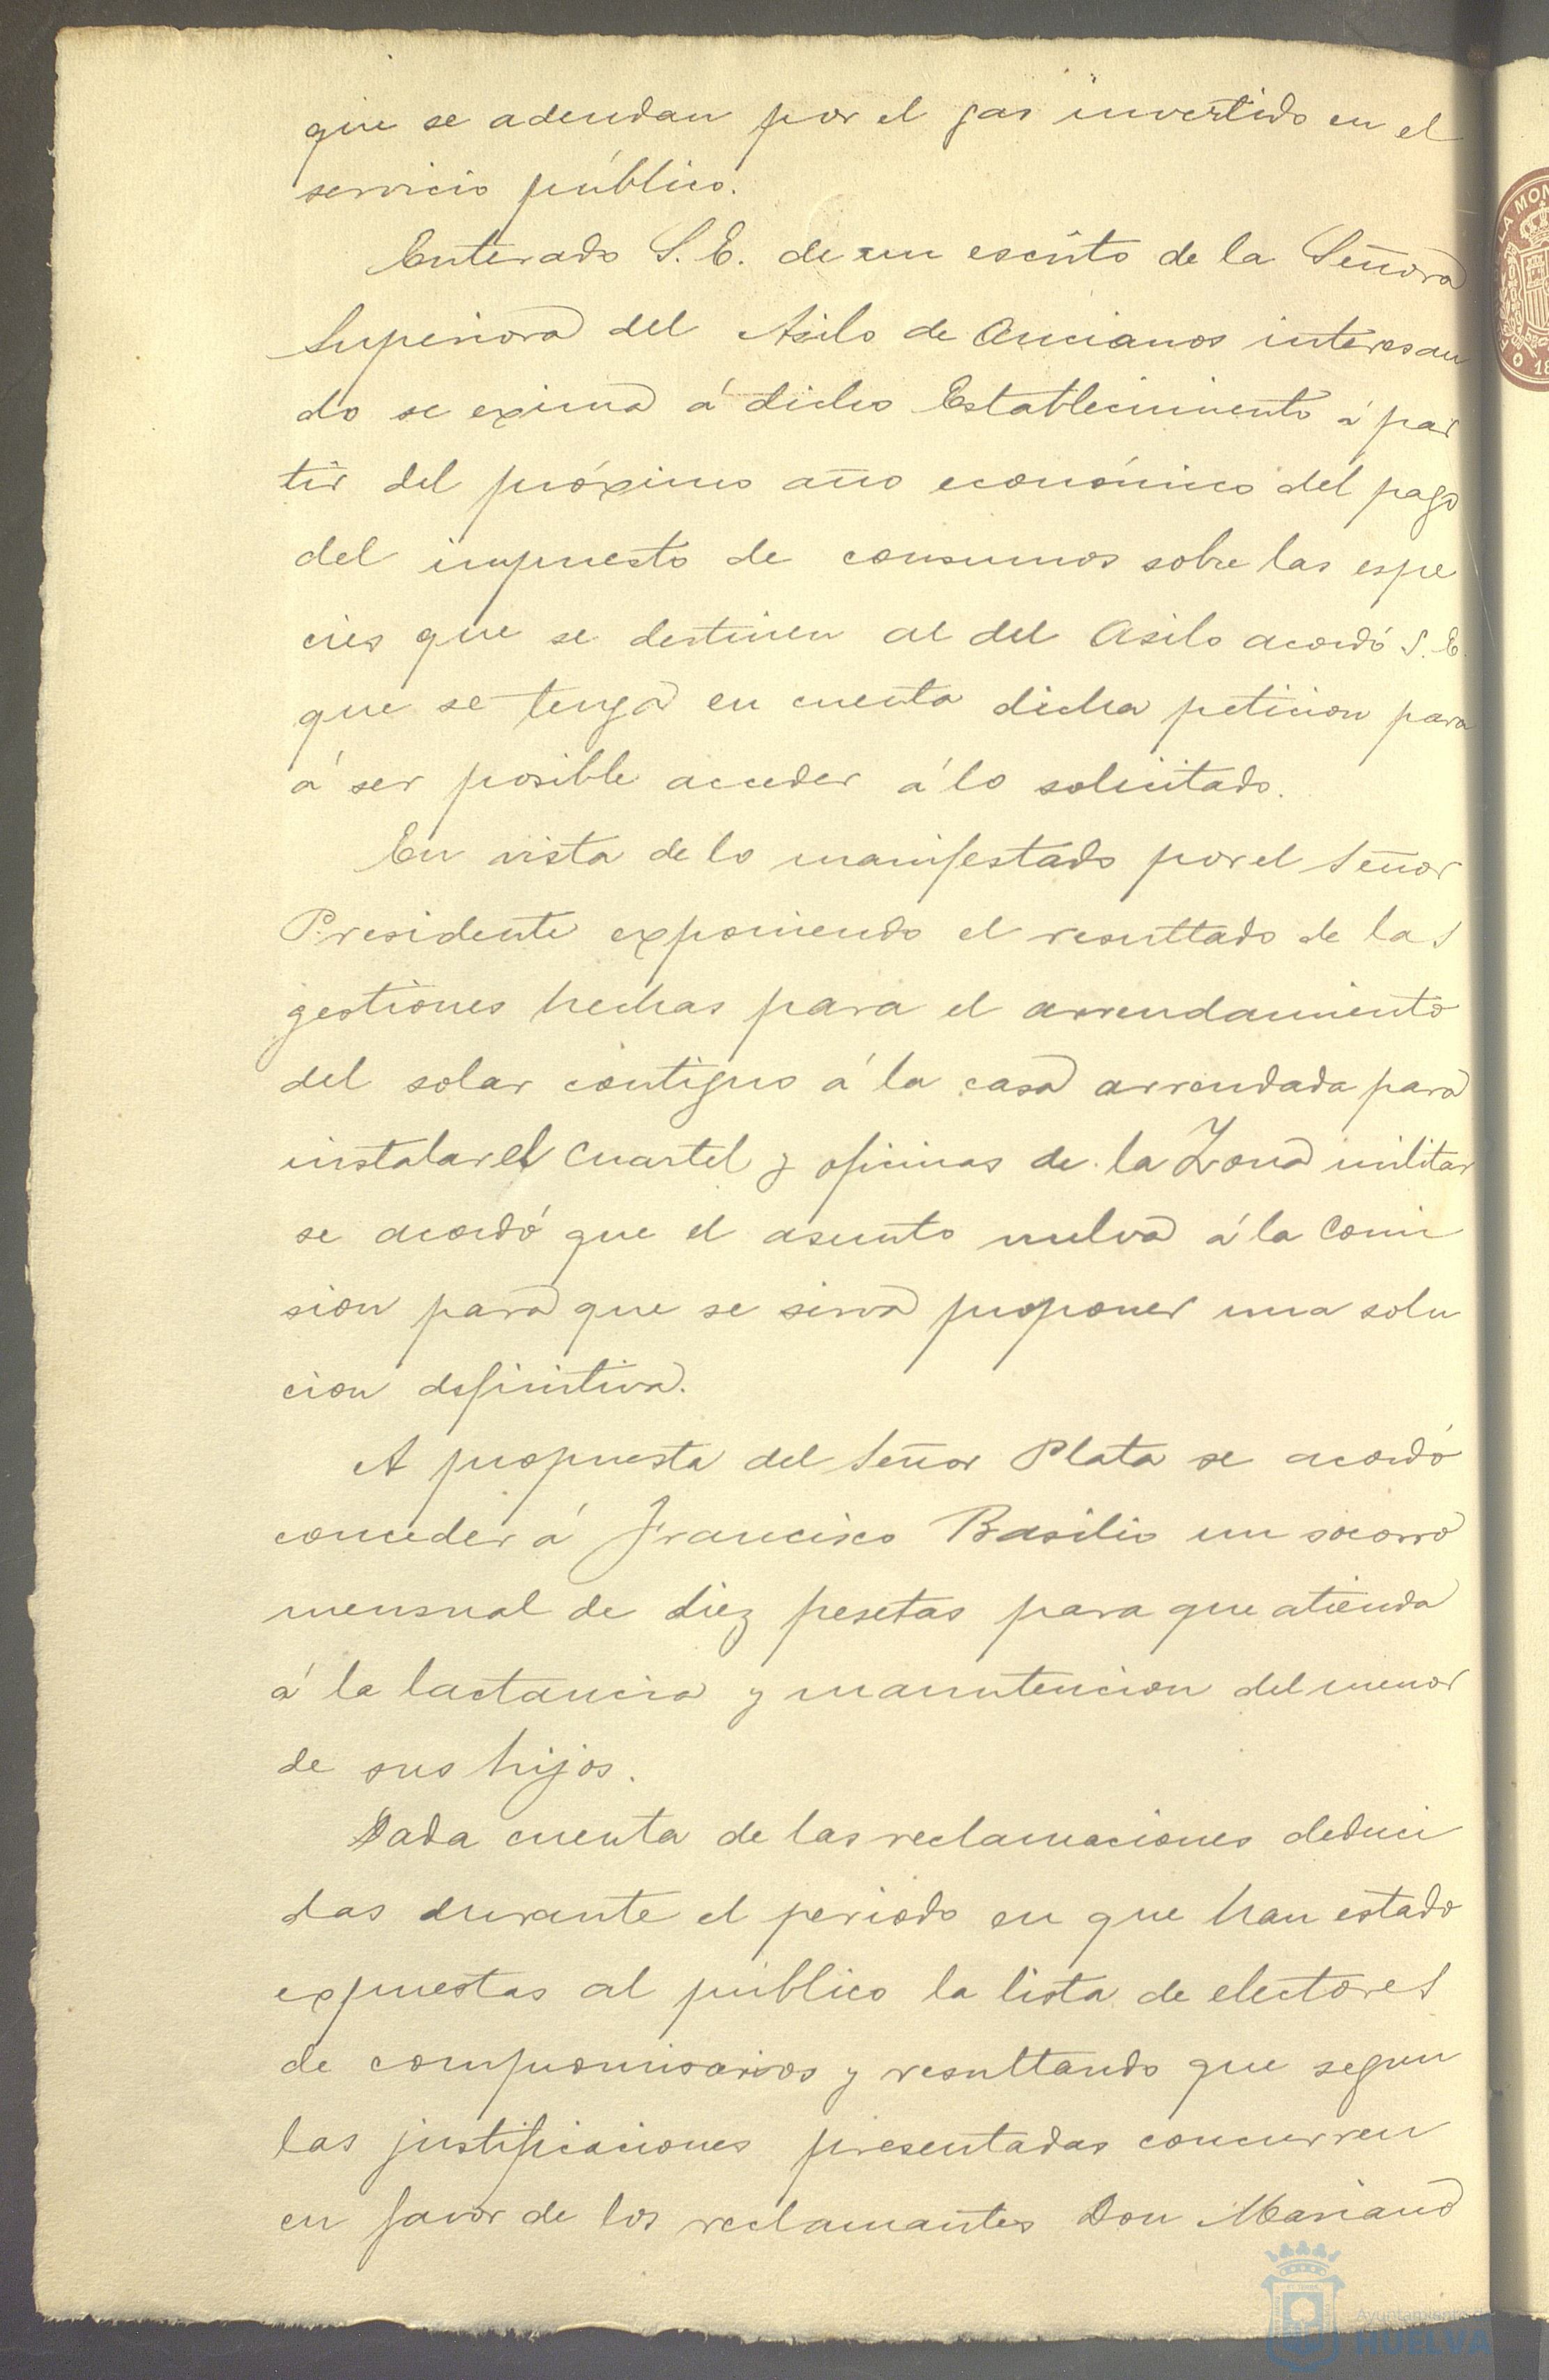 que se adeudan por el gas invertido en el
servicio público.
Enterado S. E. de un escrito de la Señora
Superiora del Asilo de Ancianos interesan
do se exima á dicho Establecimiento á par
tir del próximo año económico del pago
del impuesto de consumos sobre las espe
cies que se destinen al del Asilo acordó S. E.
que se tenga en cuenta dicha peticion para
á ser posible acceder á lo solicitado.
En vista de lo manifestado por el Señor
Presidente exponiendo el resultado de las
gestiones hechas para el arrendamiento
del solar contiguo á la casa arrendada para
instalar el Cuartel y oficinas de la Zona militar
se acordó que el asunto vuelva á la Comi
sion para que se sirva proponer una solu
cion definitiva.
A propuesta del Señor Plata se acordó
conceder á Francisco Basilio un socorro
mensual de diez pesetas para que atienda
á la lactancia y manutencion del menor
de sus hijos.
Dada cuenta de las reclamaciones deduci
das durante el periodo en que han estado
expuestas al público la lista de electores
de compromisarios y resultando que segun
las justificaciones presentadas concurren
en favor de los reclamantes Don Mariano
LA MON
O 18
Ayuntamiento
HUELVA